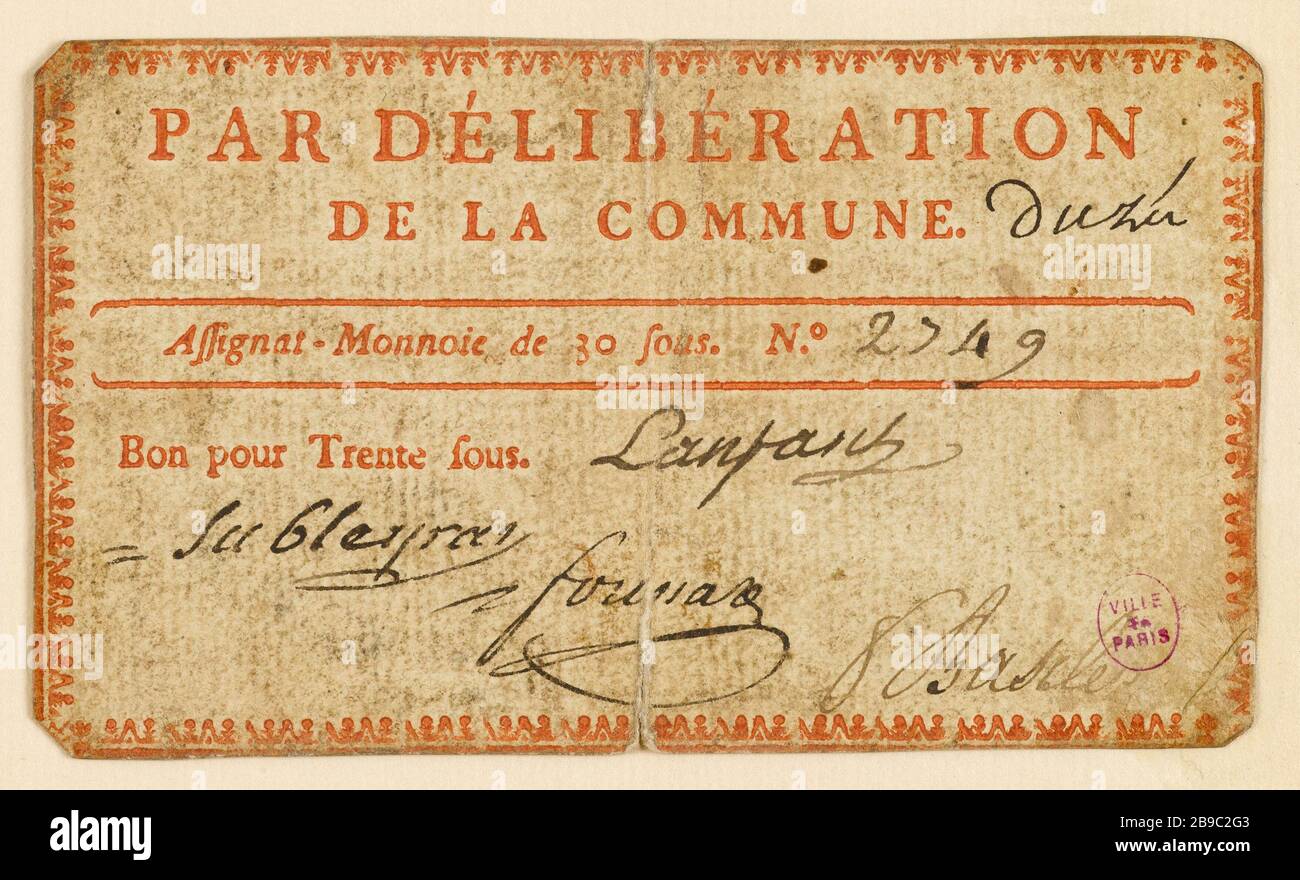 PAR DÉLIBÉRATION
DE LA COMMUNE. Duzés
Assignat-Monnoie de 30 sous. N.º 2749
Bon pour Trente sous. Lanfant
VILLE
DE
PARIS
alamy
Image ID: 2B9C2G3
www.alamy.com